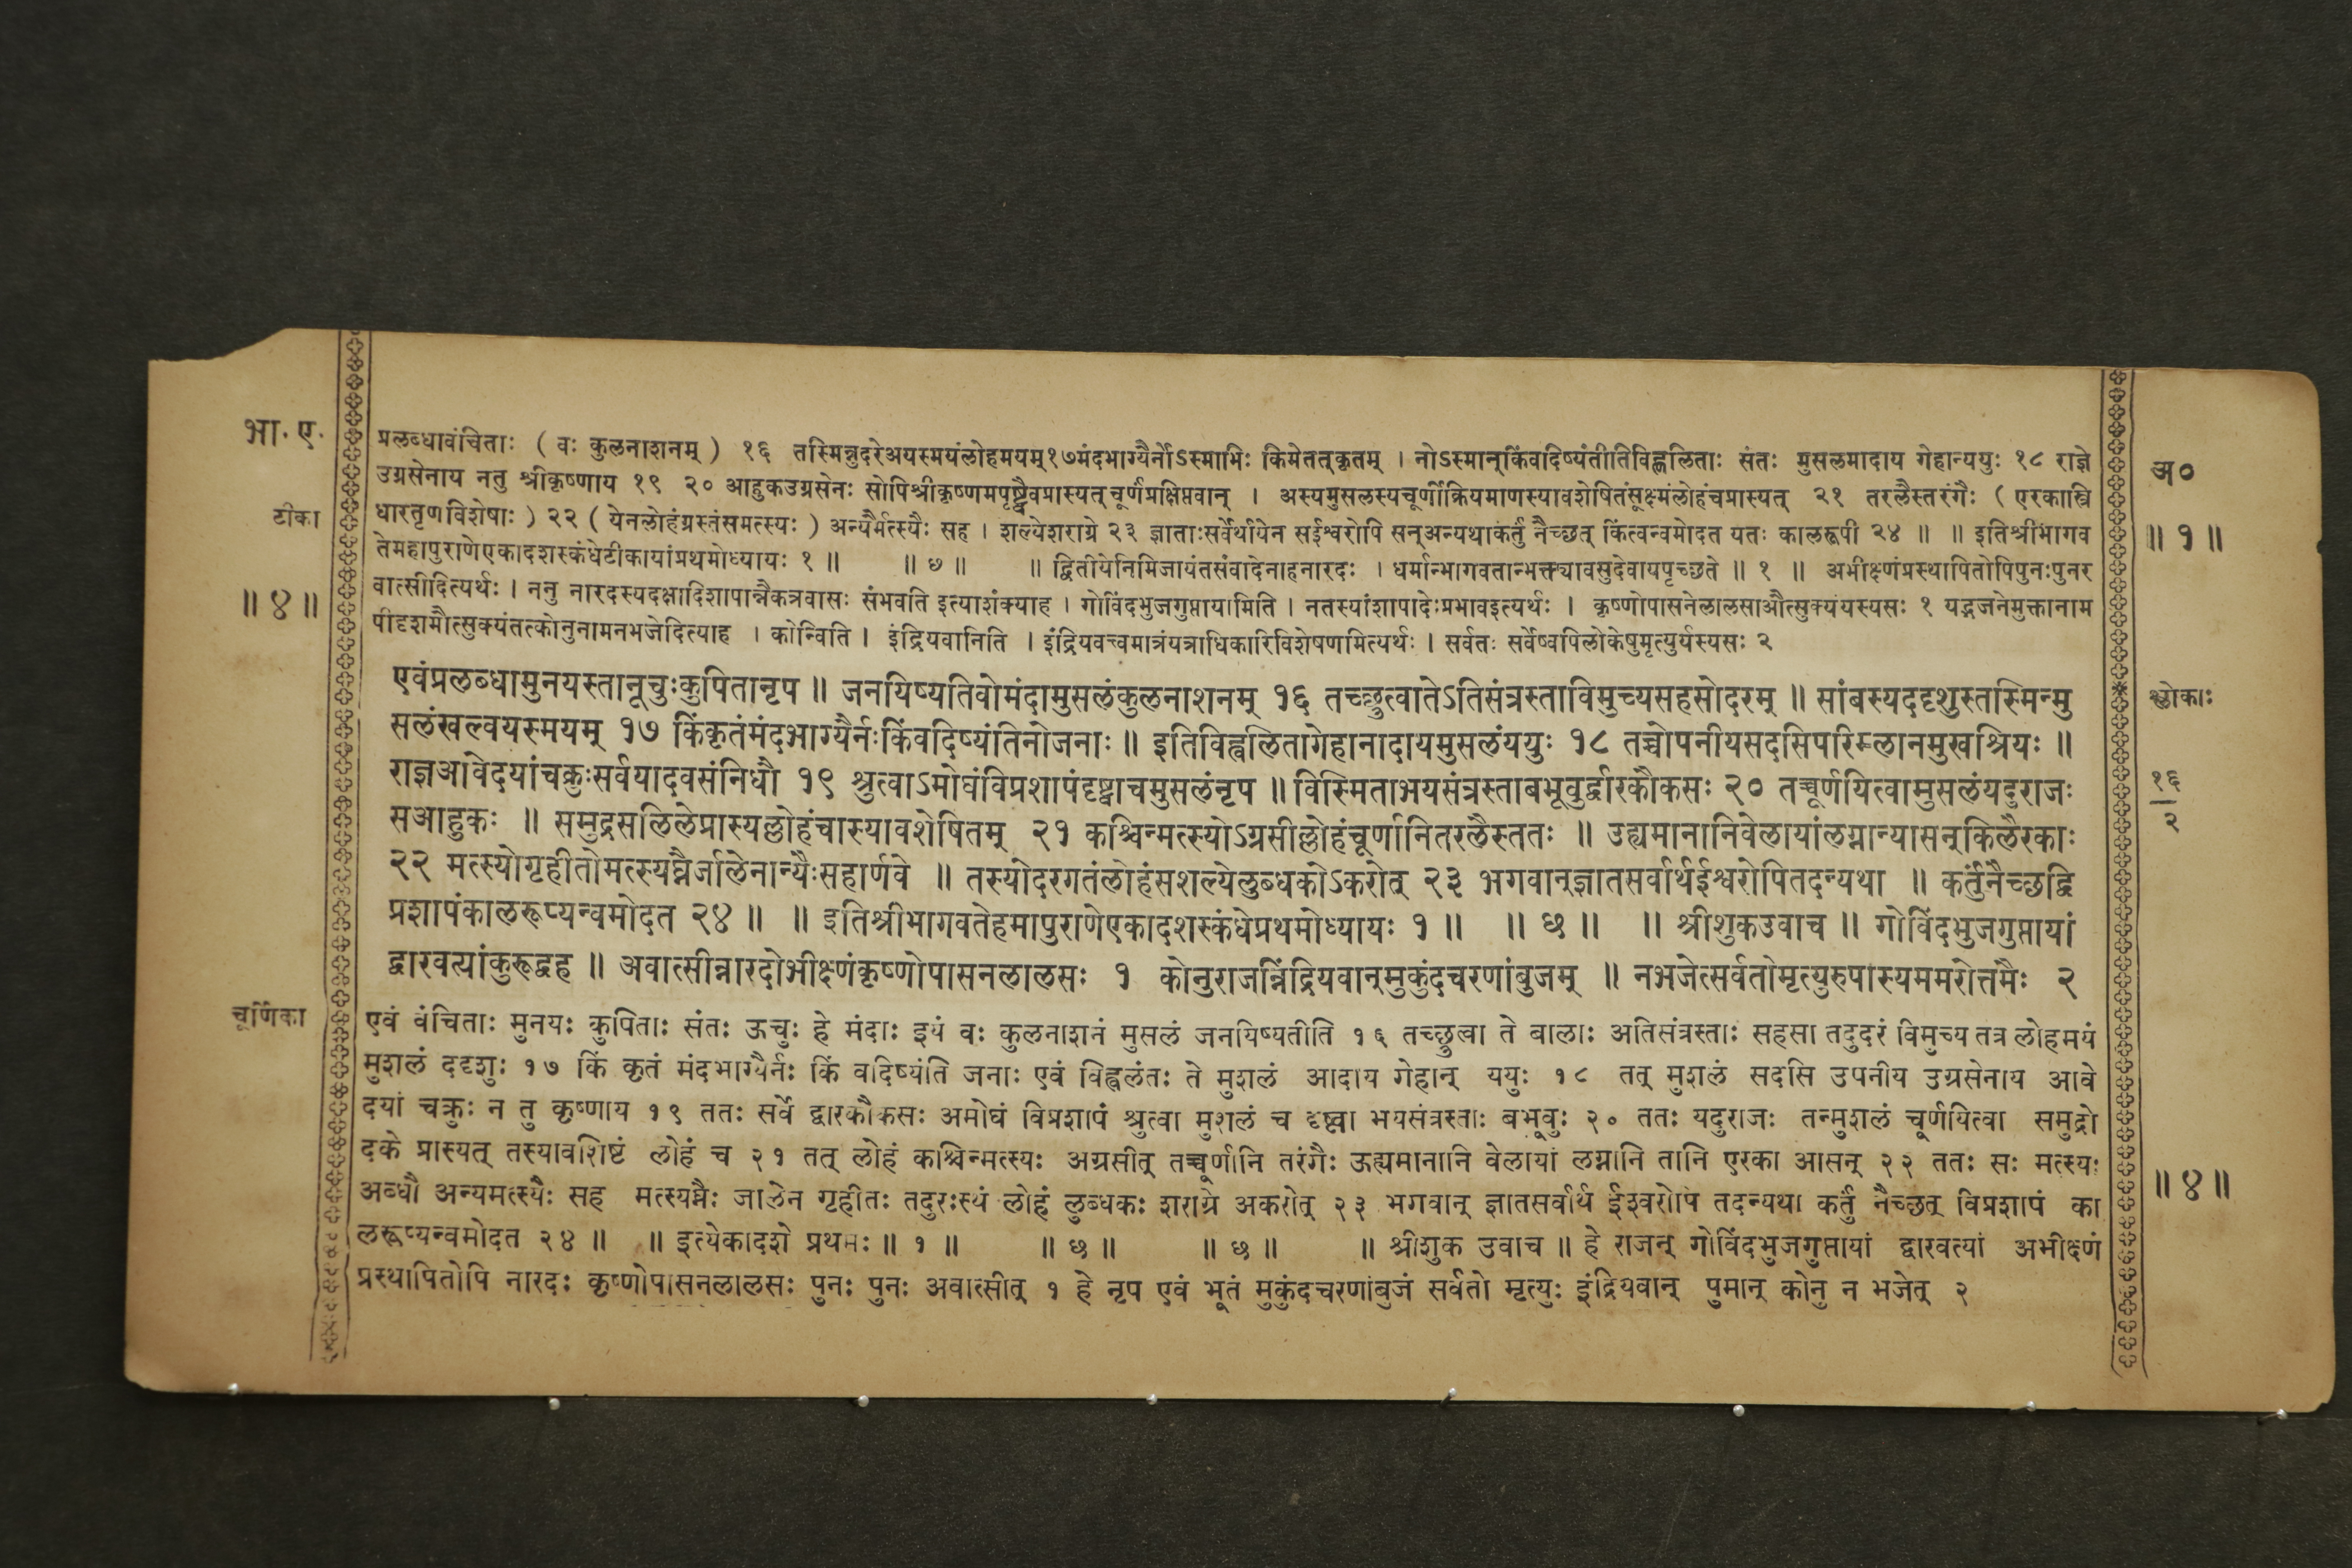 भा. ए.
प्रलब्धावंचिताः ( वः कुलनाशनम् ) १६ तस्मिन्नुदरेअयस्मयंलोहमयम्१७मंदभाग्यैर्नोऽस्माभिः किमेतत्कृतम् । नोऽस्मान्किंवदिष्यंतीतिविह्वलिताः संतः मुसलमादाय गेहान्ययुः १८ राज्ञे
अ०
उग्रसेनाय नतु श्रीकृष्णाय १९ २० आहुकउग्रसेनः सोपिश्रीकृष्णमपृष्ट्वैवप्रास्यत् चूर्णंप्रक्षिप्तवान् । अस्यमुसलस्यचूर्णीक्रियमाणस्यावशेषितंसूक्ष्मंलोहंचप्रास्यत् २१ तरलैस्तरंगैः ( एरकास्त्रि
टीका
धारतृणविशेषाः ) २२ ( येनलोहंग्रस्तंसमत्स्यः ) अन्यैर्मत्स्यैः सह । शल्येशराग्रे २३ ज्ञाताःसर्वेर्थायेन सईश्वरोपि सन्अन्यथाकर्तुं नैच्छत् किंत्वन्वमोदत यतः कालरूपी २४ ॥ ॥ इतिश्रीभागव
॥ १ ॥
तेमहापुराणेएकादशस्कंधेटीकायांप्रथमोध्यायः १ ॥ ॥ ७ ॥ ॥ द्वितीयेनिमिजायंतसंवादेनाहनारदः । धर्मान्भागवतान्भक्त्यावसुदेवायपृच्छते ॥ १ ॥ अभीक्ष्णंप्रस्थापितोपिपुनःपुनर
॥ ४ ॥
वात्सीदित्यर्थः । ननु नारदस्यदक्षादिशापान्नैकत्रवासः संभवति इत्याशंक्याह । गोविंदभुजगुप्तायामिति । नतस्यांशापादेःप्रभावइत्यर्थः । कृष्णोपासनेलालसाऔत्सुक्यंयस्यसः १ यद्भजनेमुक्तानाम
पीदृशमौत्सुक्यंतत्कोनुनामनभजेदित्याह । कोन्विति । इंद्रियवानिति । इंद्रियवत्त्वमात्रंयत्राधिकारिविशेषणमित्यर्थः । सर्वतः सर्वेष्वपिलोकेषुमृत्युर्यस्यसः २
एवंप्रलब्धामुनयस्तानूचुःकुपितानृप ॥ जनयिष्यतिवोमंदामुसलंकुलनाशनम् १६ तच्छ्रुत्वातेऽतिसंत्रस्ताविमुच्यसहसोदरम् ॥ सांबस्यददृशुस्तस्मिन्मु
श्लोकाः
सलंखल्वयस्मयम् १७ किंकृतंमंदभाग्यैर्नःकिंवदिष्यंतिनोजनाः ॥ इतिविह्वलितागेहानादायमुसलंययुः १८ तच्चोपनीयसदसिपरिम्लानमुखश्रियः ॥
राज्ञआवेदयांचक्रुःसर्वयादवसंनिधौ १९ श्रुत्वाऽमोघंविप्रशापंदृष्ट्वाचमुसलंनृप ॥ विस्मिताभयसंत्रस्ताबभूवुर्द्वारकौकसः २० तच्चूर्णयित्वामुसलंयदुराजः
१६
२
सआहुकः ॥ समुद्रसलिलेप्रास्यल्लोहंचास्यावशेषितम् २१ कश्चिन्मत्स्योऽग्रसील्लोहंचूर्णानितरलैस्ततः ॥ उह्यमानानिवेलायांलग्नान्यासन्किलैरकाः
२२ मत्स्योगृहीतोमत्स्यघ्नैर्जालेनान्यैःसहार्णवे ॥ तस्योदरगतंलोहंसशल्येलुब्धकोऽकरोत् २३ भगवान्ज्ञातसर्वार्थईश्वरोपितदन्यथा ॥ कर्तुंनैच्छद्वि
प्रशापंकालरूप्यन्वमोदत २४ ॥ ॥ इतिश्रीभागवतेहमापुराणेएकादशस्कंधेप्रथमोध्यायः १ ॥ ॥ छ ॥ ॥ श्रीशुकउवाच ॥ गोविंदभुजगुप्तायां
द्वारवत्यांकुरूद्वह ॥ अवात्सीन्नारदोभीक्ष्णंकृष्णोपासनलालसः १ कोनुराजन्निंद्रियवान्मुकुंदचरणांबुजम् ॥ नभजेत्सर्वतोमृत्युरुपास्यममरोत्तमैः २
चूर्णिका
एवं वंचिताः मुनयः कुपिताः संतः ऊचुः हे मंदाः इयं वः कुलनाशनं मुसलं जनयिष्यतीति १६ तच्छ्रुत्वा ते बालाः अतिसंत्रस्ताः सहसा तदुदरं विमुच्य तत्र लोहमयं
मुशलं ददृशुः १७ किं कृतं मंदभाग्यैर्नः किं वदिष्यंति जनाः एवं विह्वलंतः ते मुशलं आदाय गेहान् ययुः १८ तत् मुशलं सदसि उपनीय उग्रसेनाय आवे
दयां चक्रुः न तु कृष्णाय १९ ततः सर्वे द्वारकौकसः अमोघं विप्रशापं श्रुत्वा मुशलं च दृष्ट्वा भयसंत्रस्ताः बभूवुः २० ततः यदुराजः तन्मुशलं चूर्णयित्वा समुद्रो
दके प्रास्यत् तस्यावशिष्टं लोहं च २१ तत् लोहं कश्चिन्मत्स्यः अग्रसीत् तच्चूर्णानि तरंगैः ऊह्यमानानि वेलायां लग्नानि तानि एरका आसन् २२ ततः सः मत्स्यः
अब्धौ अन्यमत्स्यैः सह मत्स्यघ्नैः जालेन गृहीतः तदुरःस्थं लोहं लुब्धकः शराग्रे अकरोत् २३ भगवान् ज्ञातसर्वार्थ ईश्वरोपि तदन्यथा कर्तुं नैच्छत् विप्रशापं का
॥ ४ ॥
लरूप्यन्वमोदत २४ ॥ ॥ इत्येकादशे प्रथमः ॥ १ ॥ ॥ छ ॥ ॥ छ ॥ ॥ श्रीशुक उवाच ॥ हे राजन् गोविंदभुजगुप्तायां द्वारवत्यां अभीक्ष्णं
प्रस्थापितोपि नारदः कृष्णोपासनलालसः पुनः पुनः अवात्सीत् १ हे नृप एवं भूतं मुकुंदचरणांबुजं सर्वतो मृत्युः इंद्रियवान् पुमान् कोनु न भजेत् २